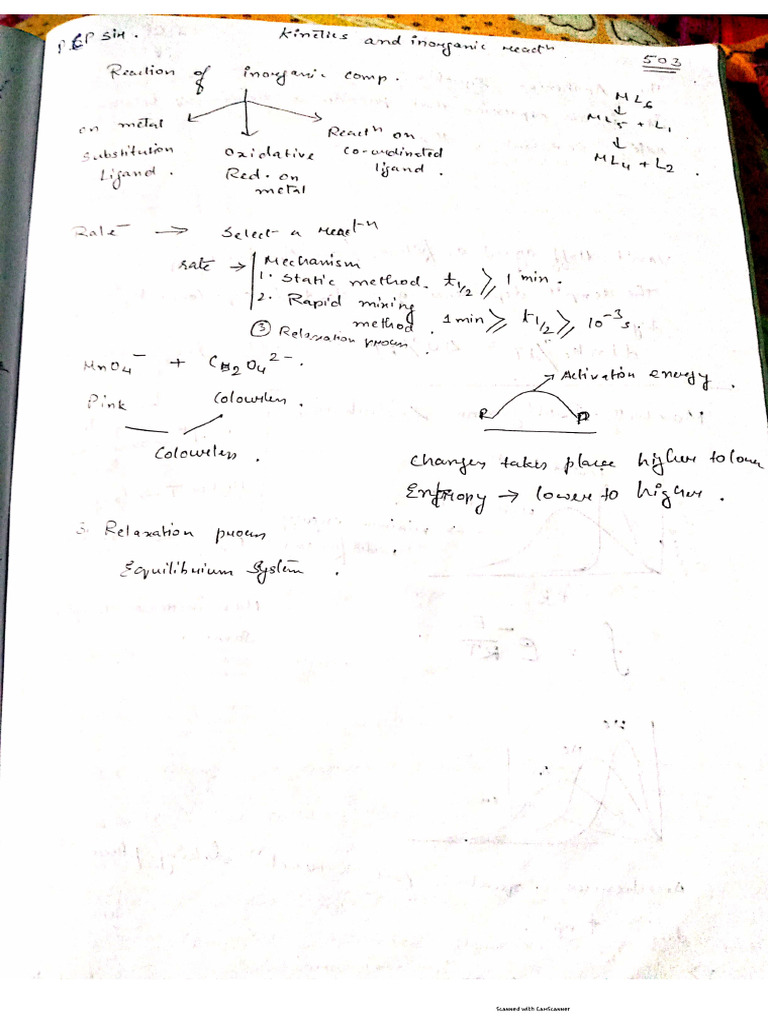 P.CP SIH.
Kinetics and inorganic reactn
503
Reaction of inorganic comp.
ML6
↓
ML5 + L1
↓
ML4 + L2 .
on metal
Substitution
Ligand .
Oxidative
Red. on
metal
Reactn on
co-ordinated
ligand .
Rate → Select a reactn
rate → Mechanism
1. Static method. t1/2 ⩾ 1 min.
2. Rapid mixing
method . 1 min ⩾ t1/2 ⩾ 10⁻³s.
③ Relaxation process .
MnO4⁻ + C2O4²⁻.
Pink
Colourless .
Colourless .
Activation energy .
R P
Changes takes places higher to lower
Entropy → lower to higher .
3. Relaxation process
Equilibrium System .
Scanned with CamScanner